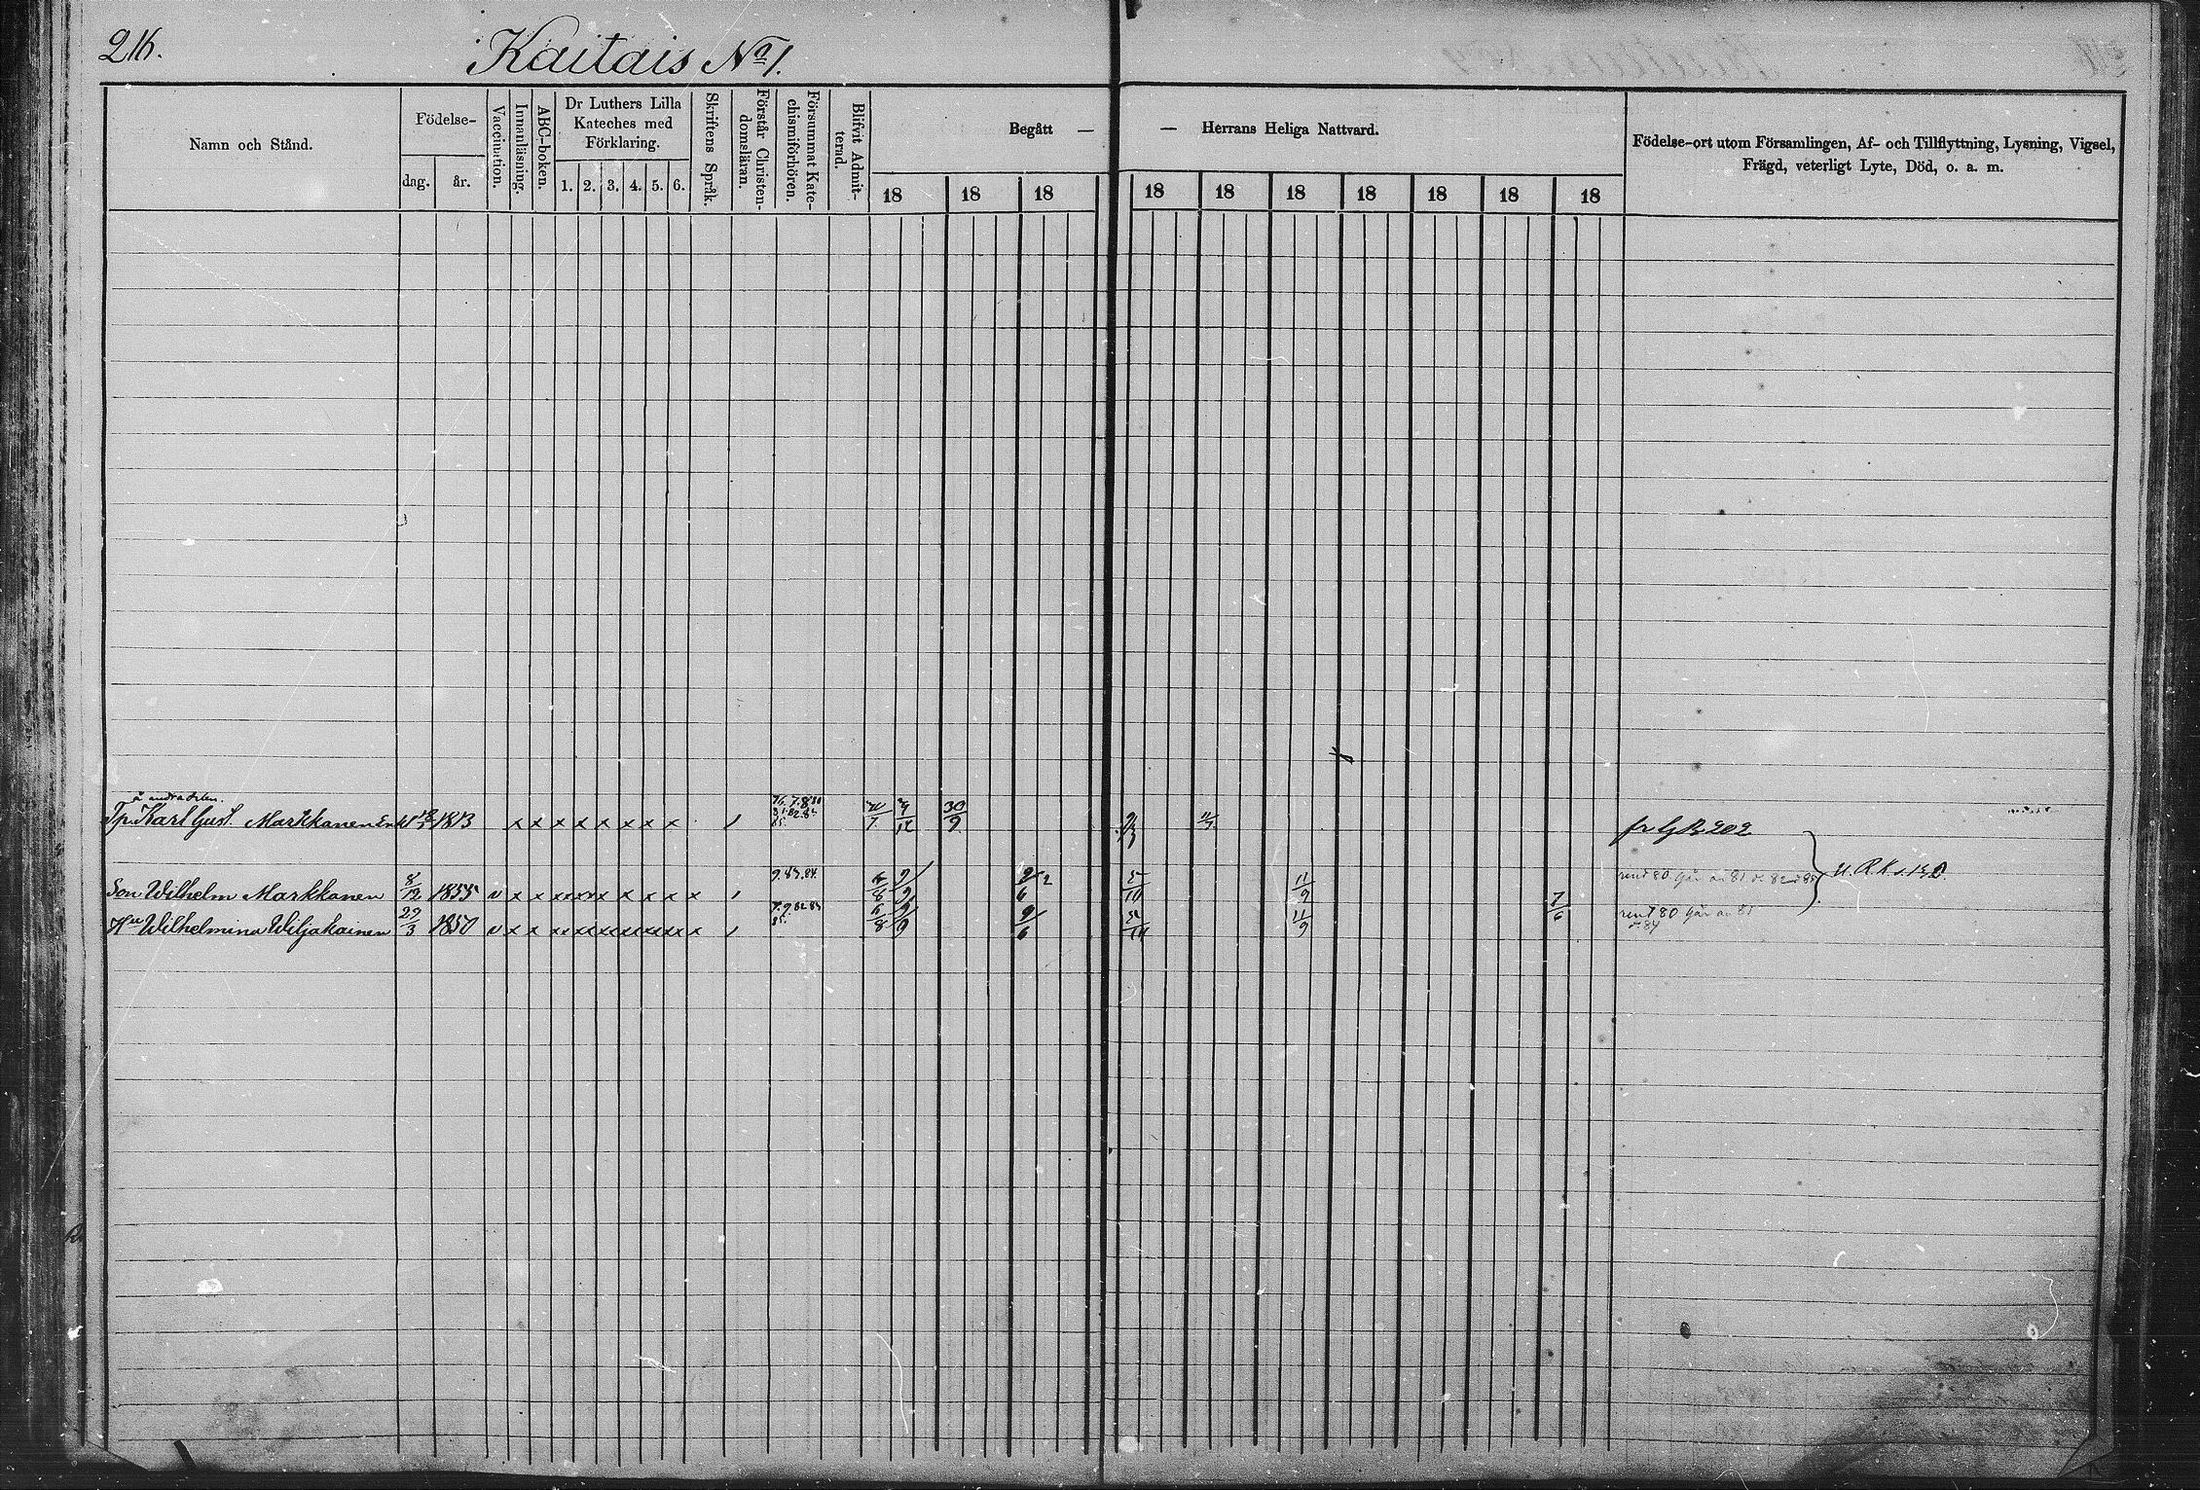 216.
Kaitais No 1.
Namn och Stånd.
Födelse-
dag.
år.
Vaccination.
Innanläsning.
ABC-boken.
Dr Luthers Lilla
Kateches med
Förklaring.
1. 2. 3. 4. 5. 6.
Skriftens Språk.
Förstår Christen-
domsläran.
Försummat Kate-
chismiförhören.
Blifvit Admit-
terad.
Begått —
— Herrans Heliga Nattvard.
18 18 18 18 18 18 18 18 18 18
Födelse-ort utom Församlingen, Af- och Tillflyttning, Lysning, Vigsel,
Frägd, veterligt Lyte, Död, o. a. m.
Tp. Karl Gust. Markkanen 1813 x x x x x x x x 30/9 11/7
fr G B 202
Son Wilhelm Markkanen 8/12 1855 v x x xx xx x x x x x 9.83.84. 9/6 5/10 11/9
Hu Wilhelmina Wiljakainen 29/3 1850 v x x xx xx xx xx xx xx x 7.9.82.83 85. 6/8 9/9 9/6 11/9 7/6